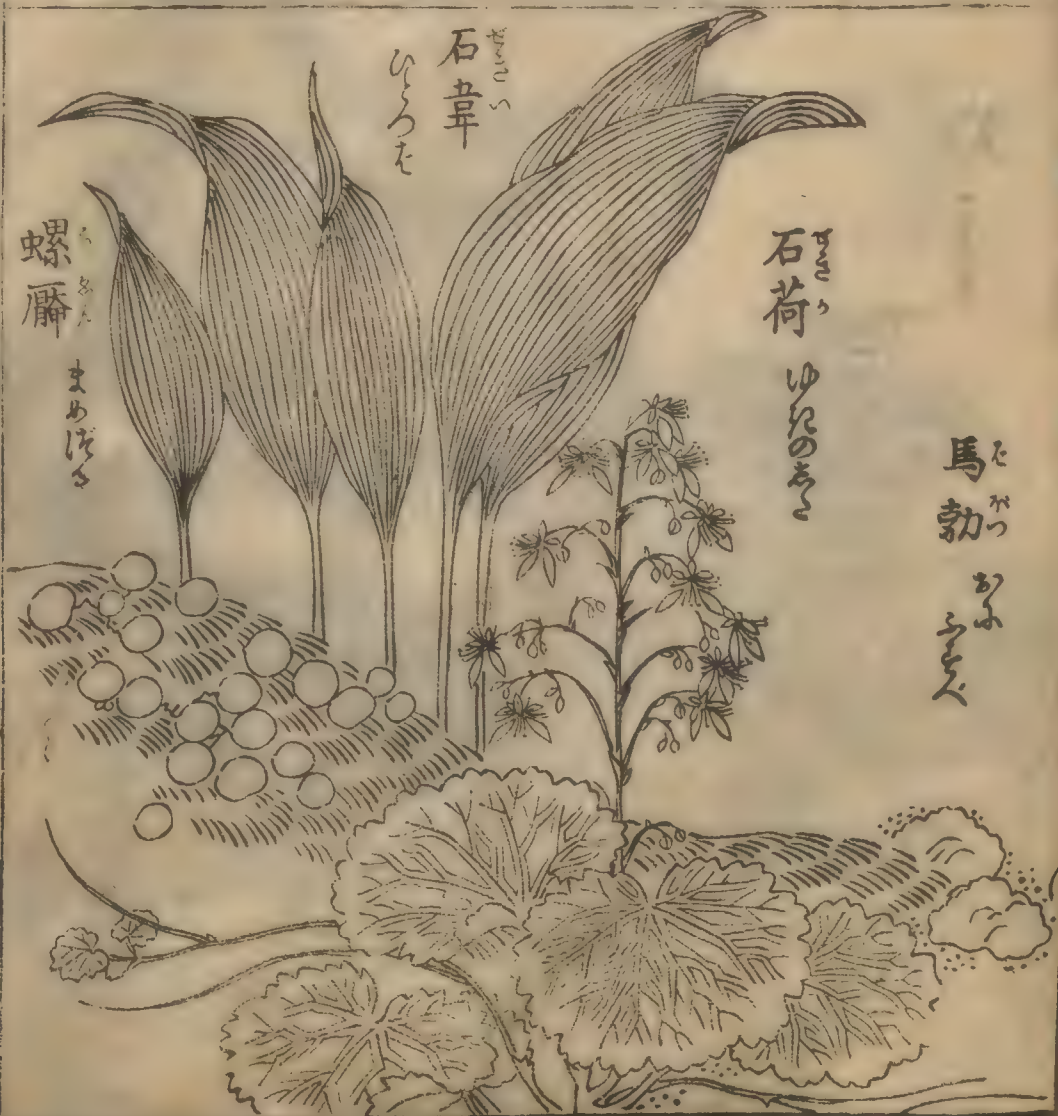 馬勃
ばぼつ
おに
ふすべ
石荷
せきか
ゆきのした
石韋
せきい
ひとつば
螺厴
まめづる